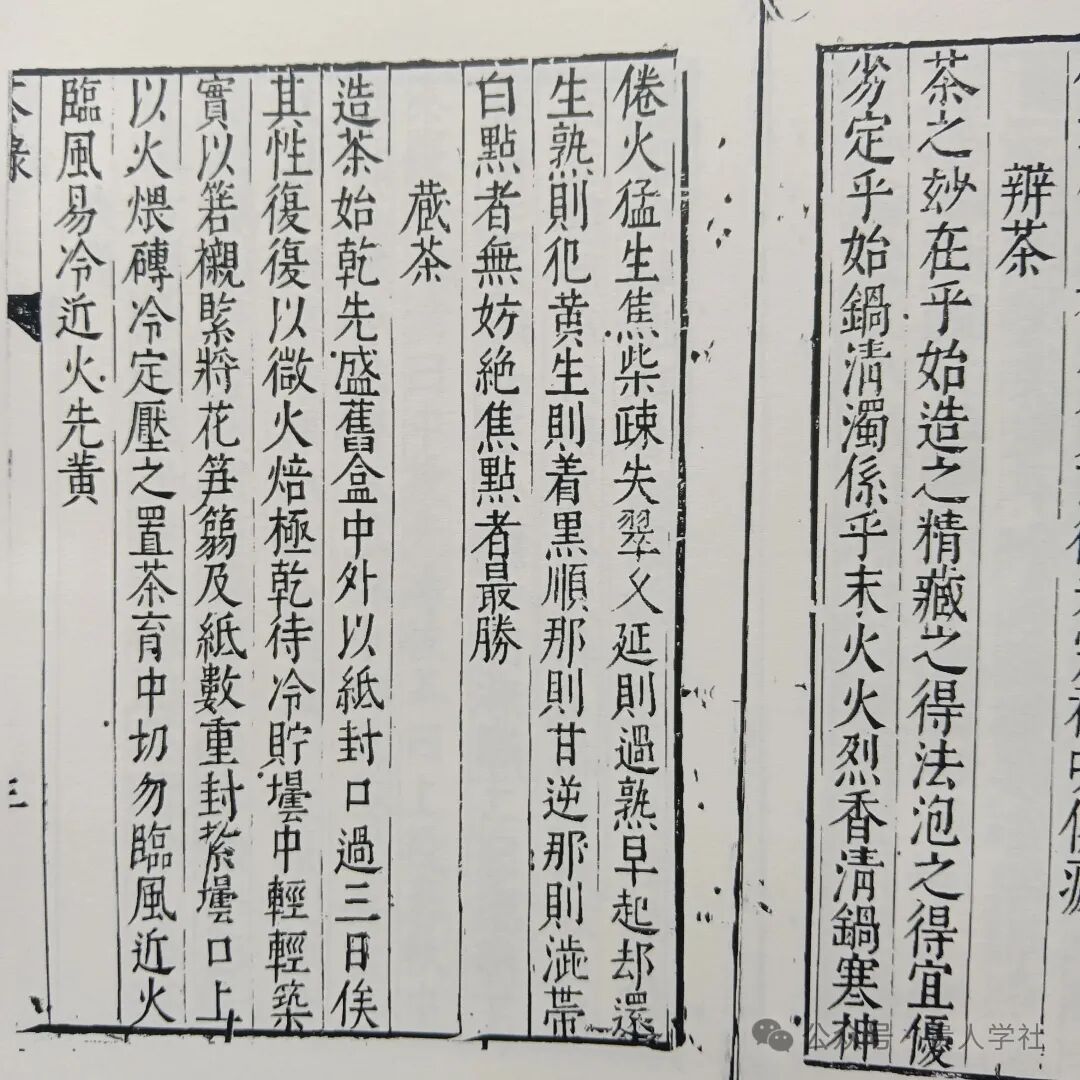 辨茶
茶之妙在乎始造之精藏之得法泡之得宜優
劣定乎始鍋清濁係乎末火火烈香清鍋寒神
倦火猛生焦柴疎失翠乆延則過熟早起却還
生熟則犯黄生則着黒順那則甘逆那則澁帶
白點者無妨絶焦點者最勝
蔵茶
造茶始乾先盛舊盒中外以紙封口過三日俟
其性復復以微火焙極乾待冷貯壜中輕輕築
實以箬襯緊將花筍箬及紙數重封紥壜口上
以火煨磚冷定壓之置茶育中切勿臨風近火
臨風易冷近火先黄
錄
三
公众号
人学社